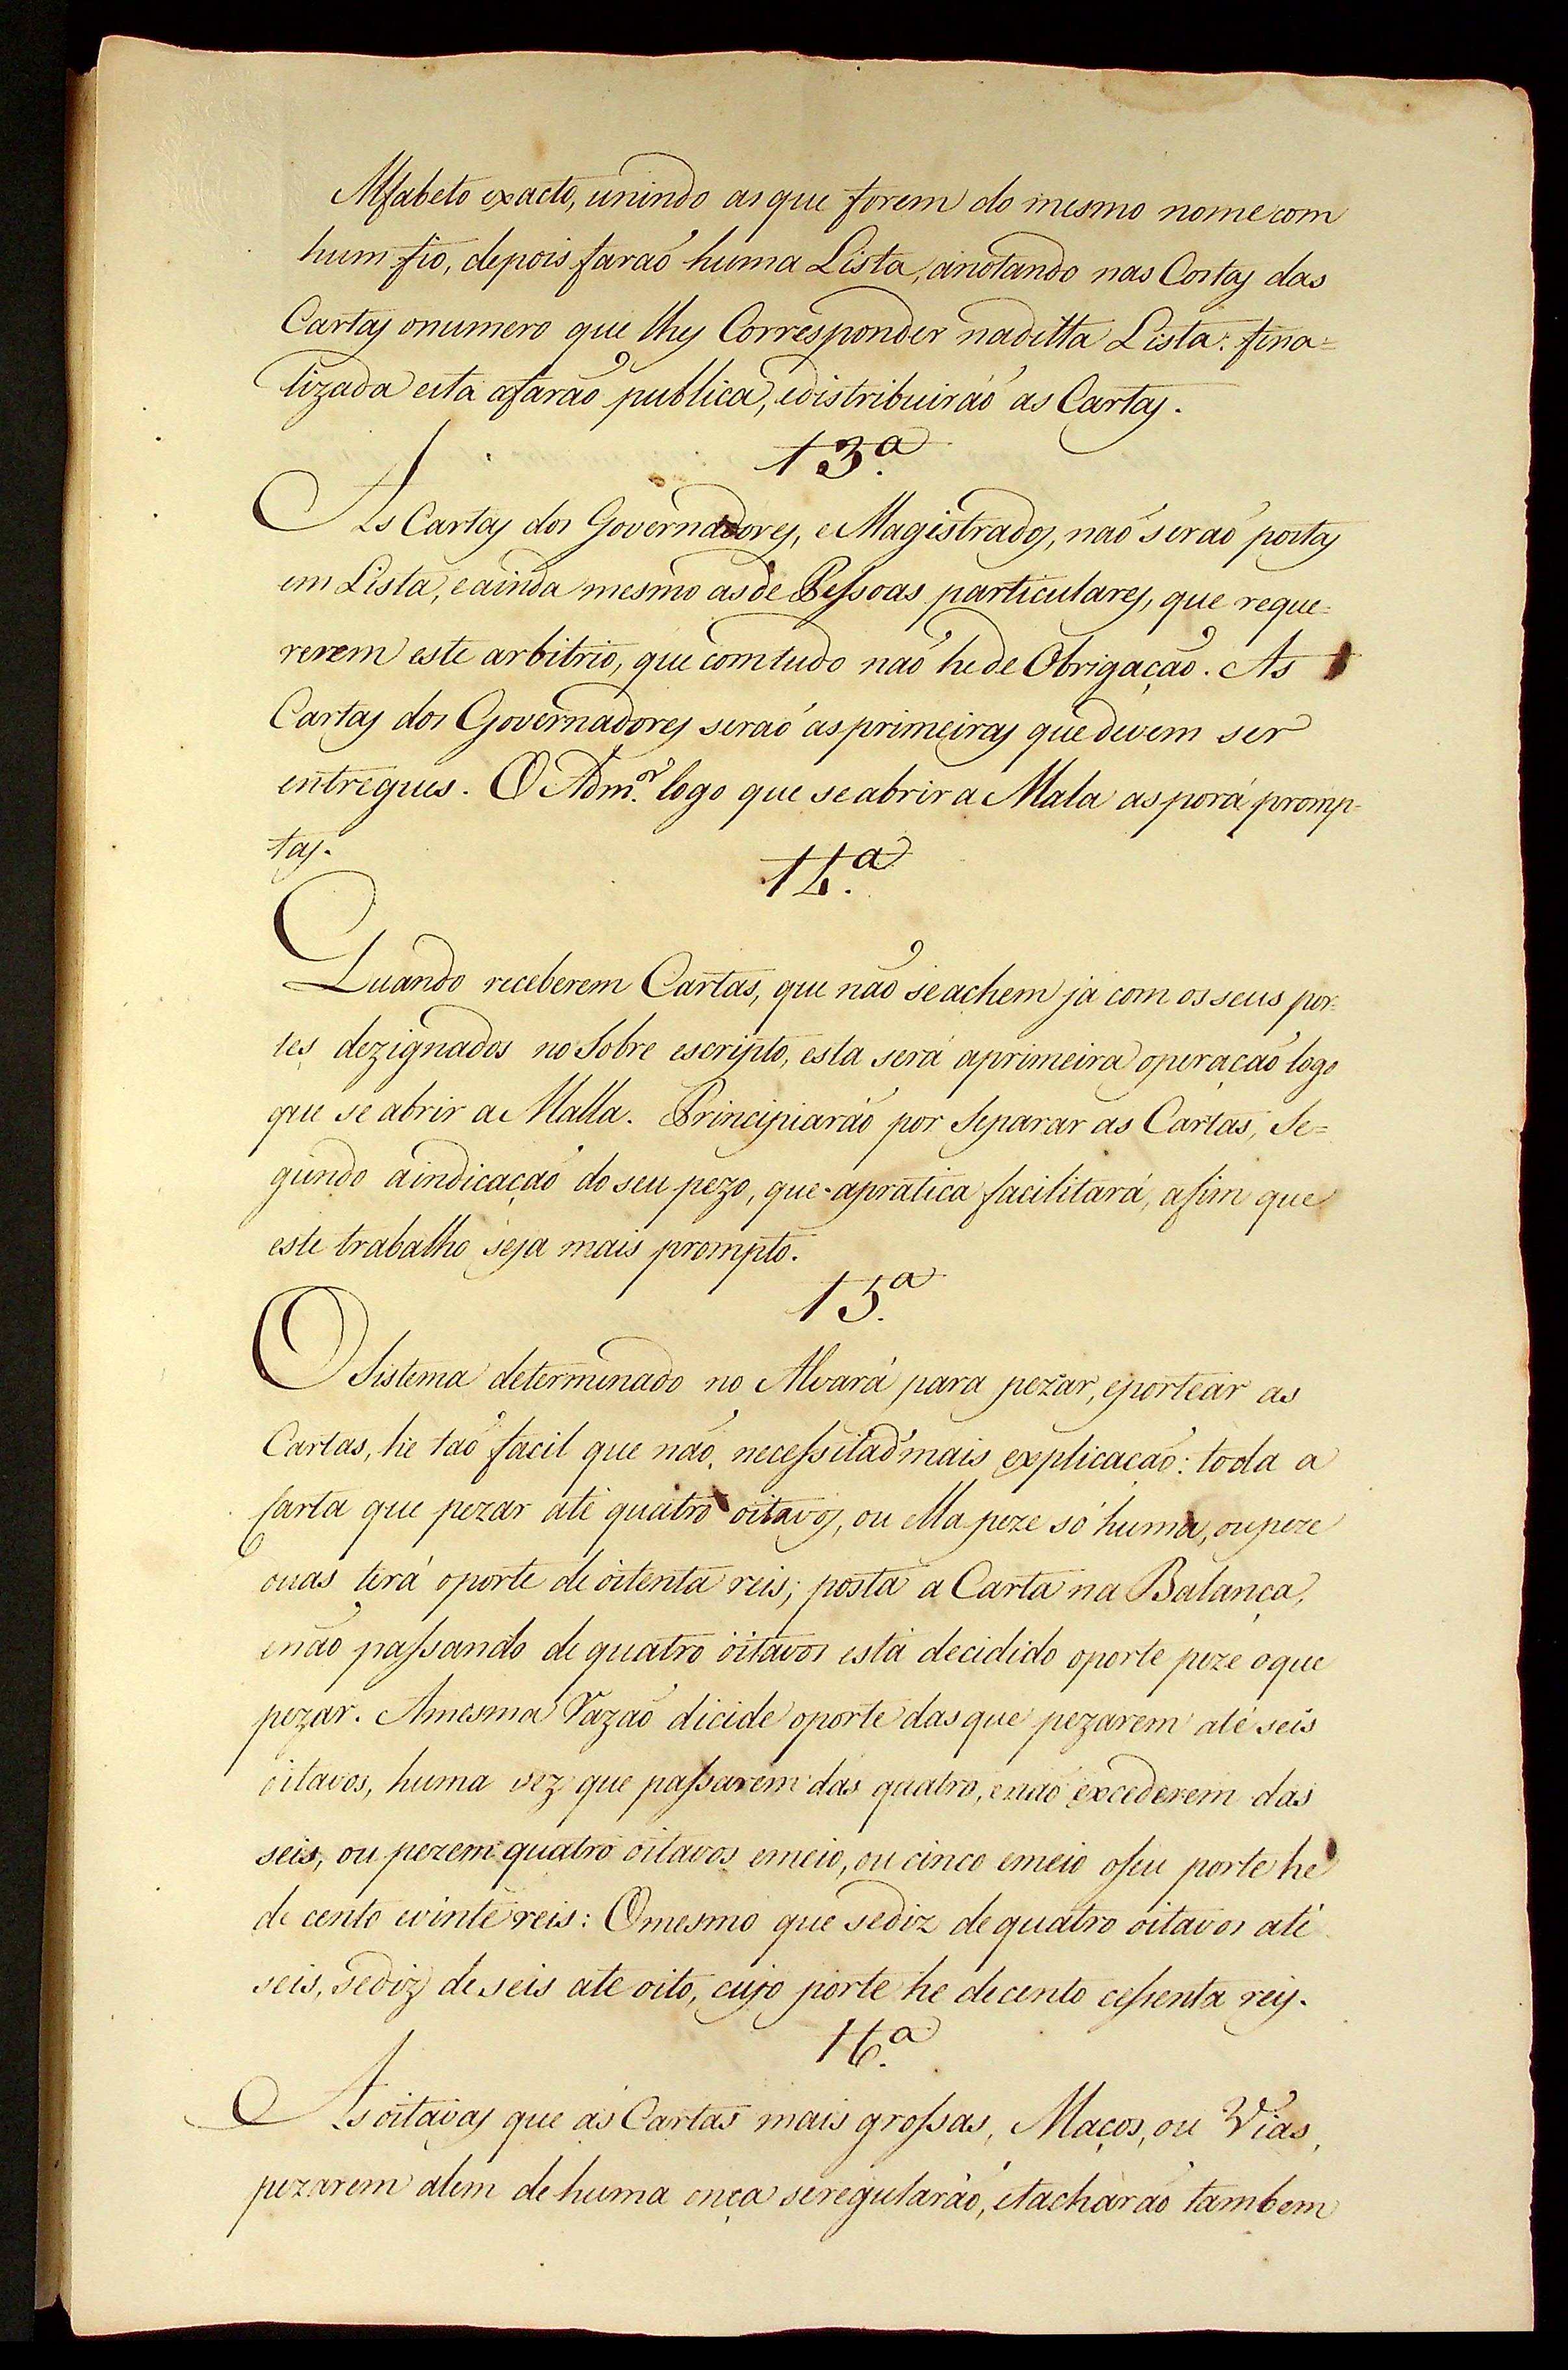 Alfabeto exacto, unindo as que forem do mesmo nome com
hum fio, depois faraõ huma Lista, anotando nas Costas das
Cartas onumero que lhes Corresponder naditta Lista: fina=
lizada esta afarão publica, edistribuiráõ as Cartas.
13.ª
As Cartas dos Governadores, e Magistrados, naõ seraõ postas
em Lista, e ainda mesmo as de Pessoas particulares, que reque=
rerem este arbitrio, que comtudo naõ he de Obrigação. As
Cartas dos Governadores seraõ as primeiras que devem ser
entregues. O Adm.or logo que se abrir a Mala as porá promp=
tas.
14.ª
Quando receberem Cartas, que não se achem já com os seus por=
tes dezignados no Sobre escripto, esta será aprimeira operaçaõ logo
que se abrir a Malla. Principiaráõ por Separar as Cartas, Se=
gundo aindicaçaõ do seu pezo, que apratica facilitará, afim que
este trabalho seja mais prompto.
15.ª
O Sistema determinado no Alvará para pezar, eportear as
Cartas, he taõ facil que não necessita d'mais explicaçaõ: toda a
Carta que pezar até quatro oitavos, ou ella peze só huma, ou peze
duas terá oporte de oitenta reis; posta a Carta na Balança,
enão passando de quatro oitavos está decidido oporte peze oque
pezar. Amesma Razaõ dicide oporte das que pezarem até seis
oitavos, huma vez que passarem das quatro, enaõ excederem das
seis, ou pezem quatro oitavos emeio, ou cinco emeio oseu porte he
de cento evinte reis: Omesmo que sediz de quatro oitavos até
seis, sediz de seis ate oito, cujo porte he de cento cessenta reis.
16.ª
As oitavas que as Cartas mais grossas, Maços, ou Vias,
pezarem alem de huma onça seregularáõ, etacharáõ tambem